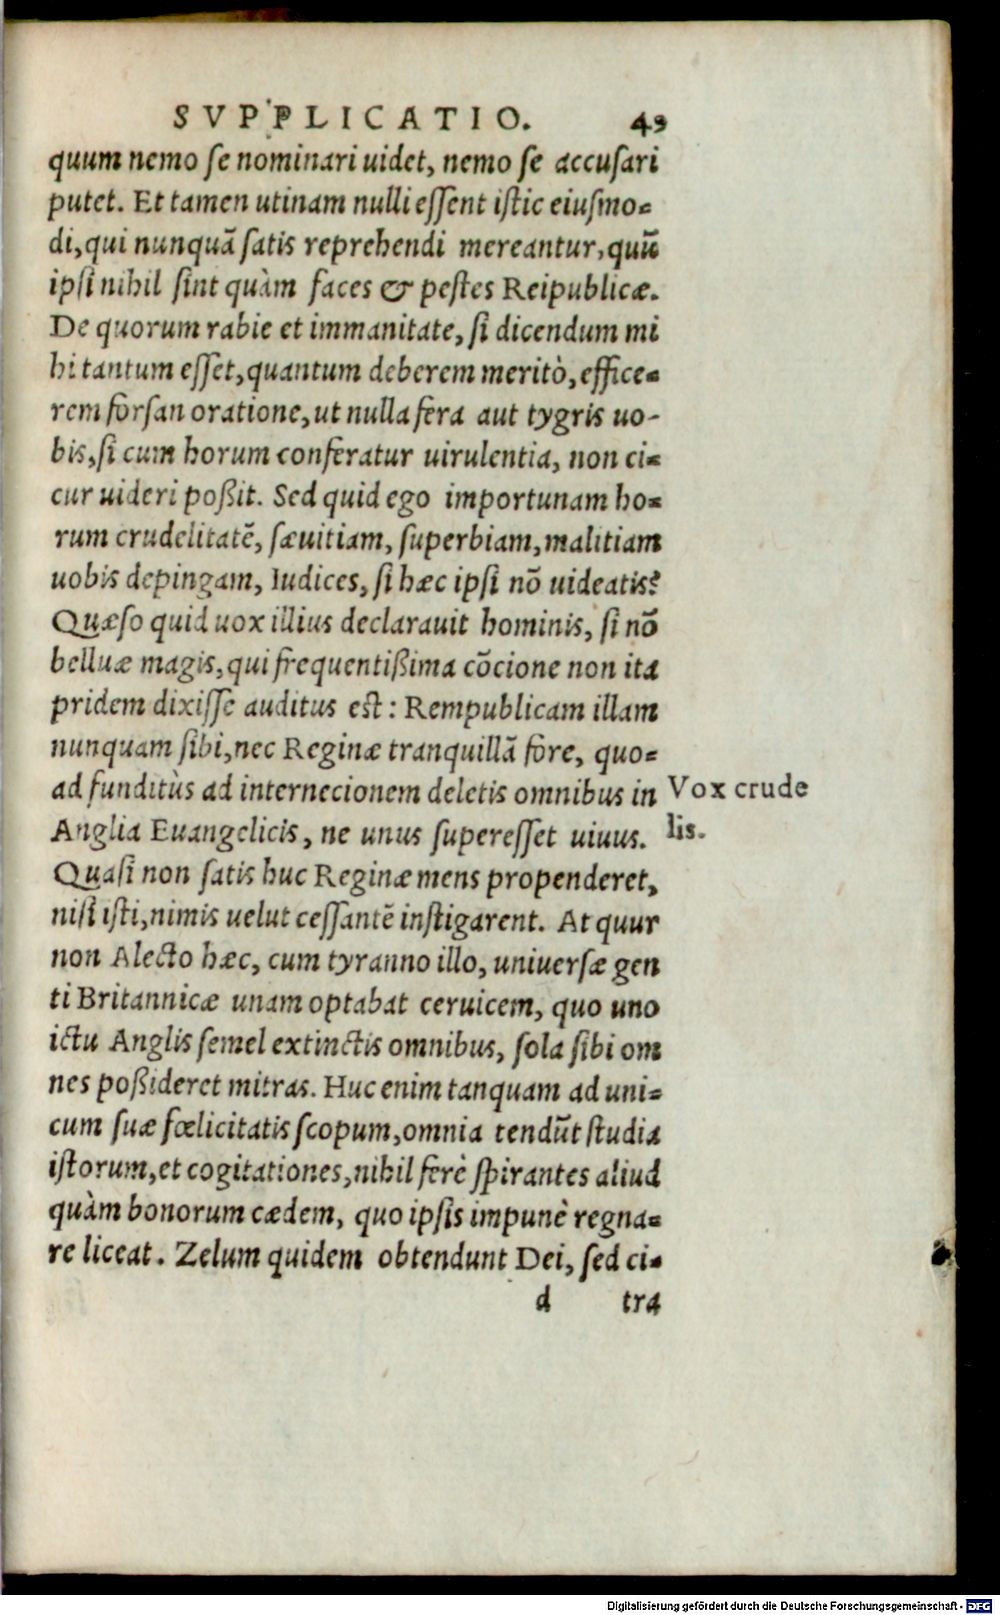 SVPPLICATIO. 49
quum nemo se nominari uidet, nemo se accusari
putet. Et tamen utinam nulli essent istic eiusmo=
di, qui nunquā satis reprehendi mereantur, quū
ipsi nihil sint quàm faces & pestes Reipublicæ.
De quorum rabie et immanitate, si dicendum mi
hi tantum esset, quantum deberem meritò, effice=
rem forsan oratione, ut nulla fera aut tygris uo-
bis, si cum horum conferatur uirulentia, non ci=
cur uideri poßit. Sed quid ego importunam ho=
rum crudelitatē, sæuitiam, superbiam, malitiam
uobis depingam, Iudices, si hæc ipsi nō uideatis?
Quæso quid uox illius declarauit hominis, si nō
belluæ magis, qui frequentißima cōcione non ita
pridem dixisse auditus est: Rempublicam illam
nunquam sibi, nec Reginæ tranquillā fore, quo=
ad funditùs ad internecionem deletis omnibus in
Vox crude
Anglia Euangelicis, ne unus superesset uiuus.
lis.
Quasi non satis huc Reginæ mens propenderet,
nisi isti, nimis uelut cessantē instigarent. At quur
non Alecto hæc, cum tyranno illo, uniuersæ gen
ti Britannicæ unam optabat ceruicem, quo uno
ictu Anglis semel extinctis omnibus, sola sibi om
nes poßideret mitras. Huc enim tanquam ad uni=
cum suæ fœlicitatis scopum, omnia tendūt studia
istorum, et cogitationes, nihil ferè spirantes aliud
quàm bonorum cædem, quo ipsis impunè regna=
re liceat. Zelum quidem obtendunt Dei, sed ci=
d tra
Digitalisierung gefördert durch die Deutsche Forschungsgemeinschaft - DFG